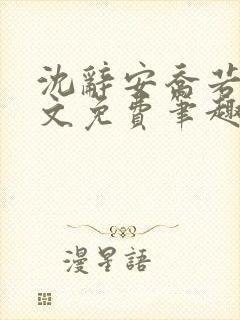 沈辭安喬若
文免費筆趣
漫星語